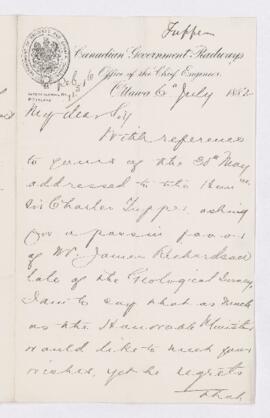 Tupper
Canadian Government Railways
Office of the Chief Engineer
Ottawa 6th July 1882
My dear Sir
With reference
to yours of the 30th May
addressed to the Hon
Sir Charles Tupper asking
for a pass in favor
of Mr. James Richardson
late of the Geological Survey,
I am to say that as much
as the Honorable Minister
would like to meet your
wishes, yet he regrets
that